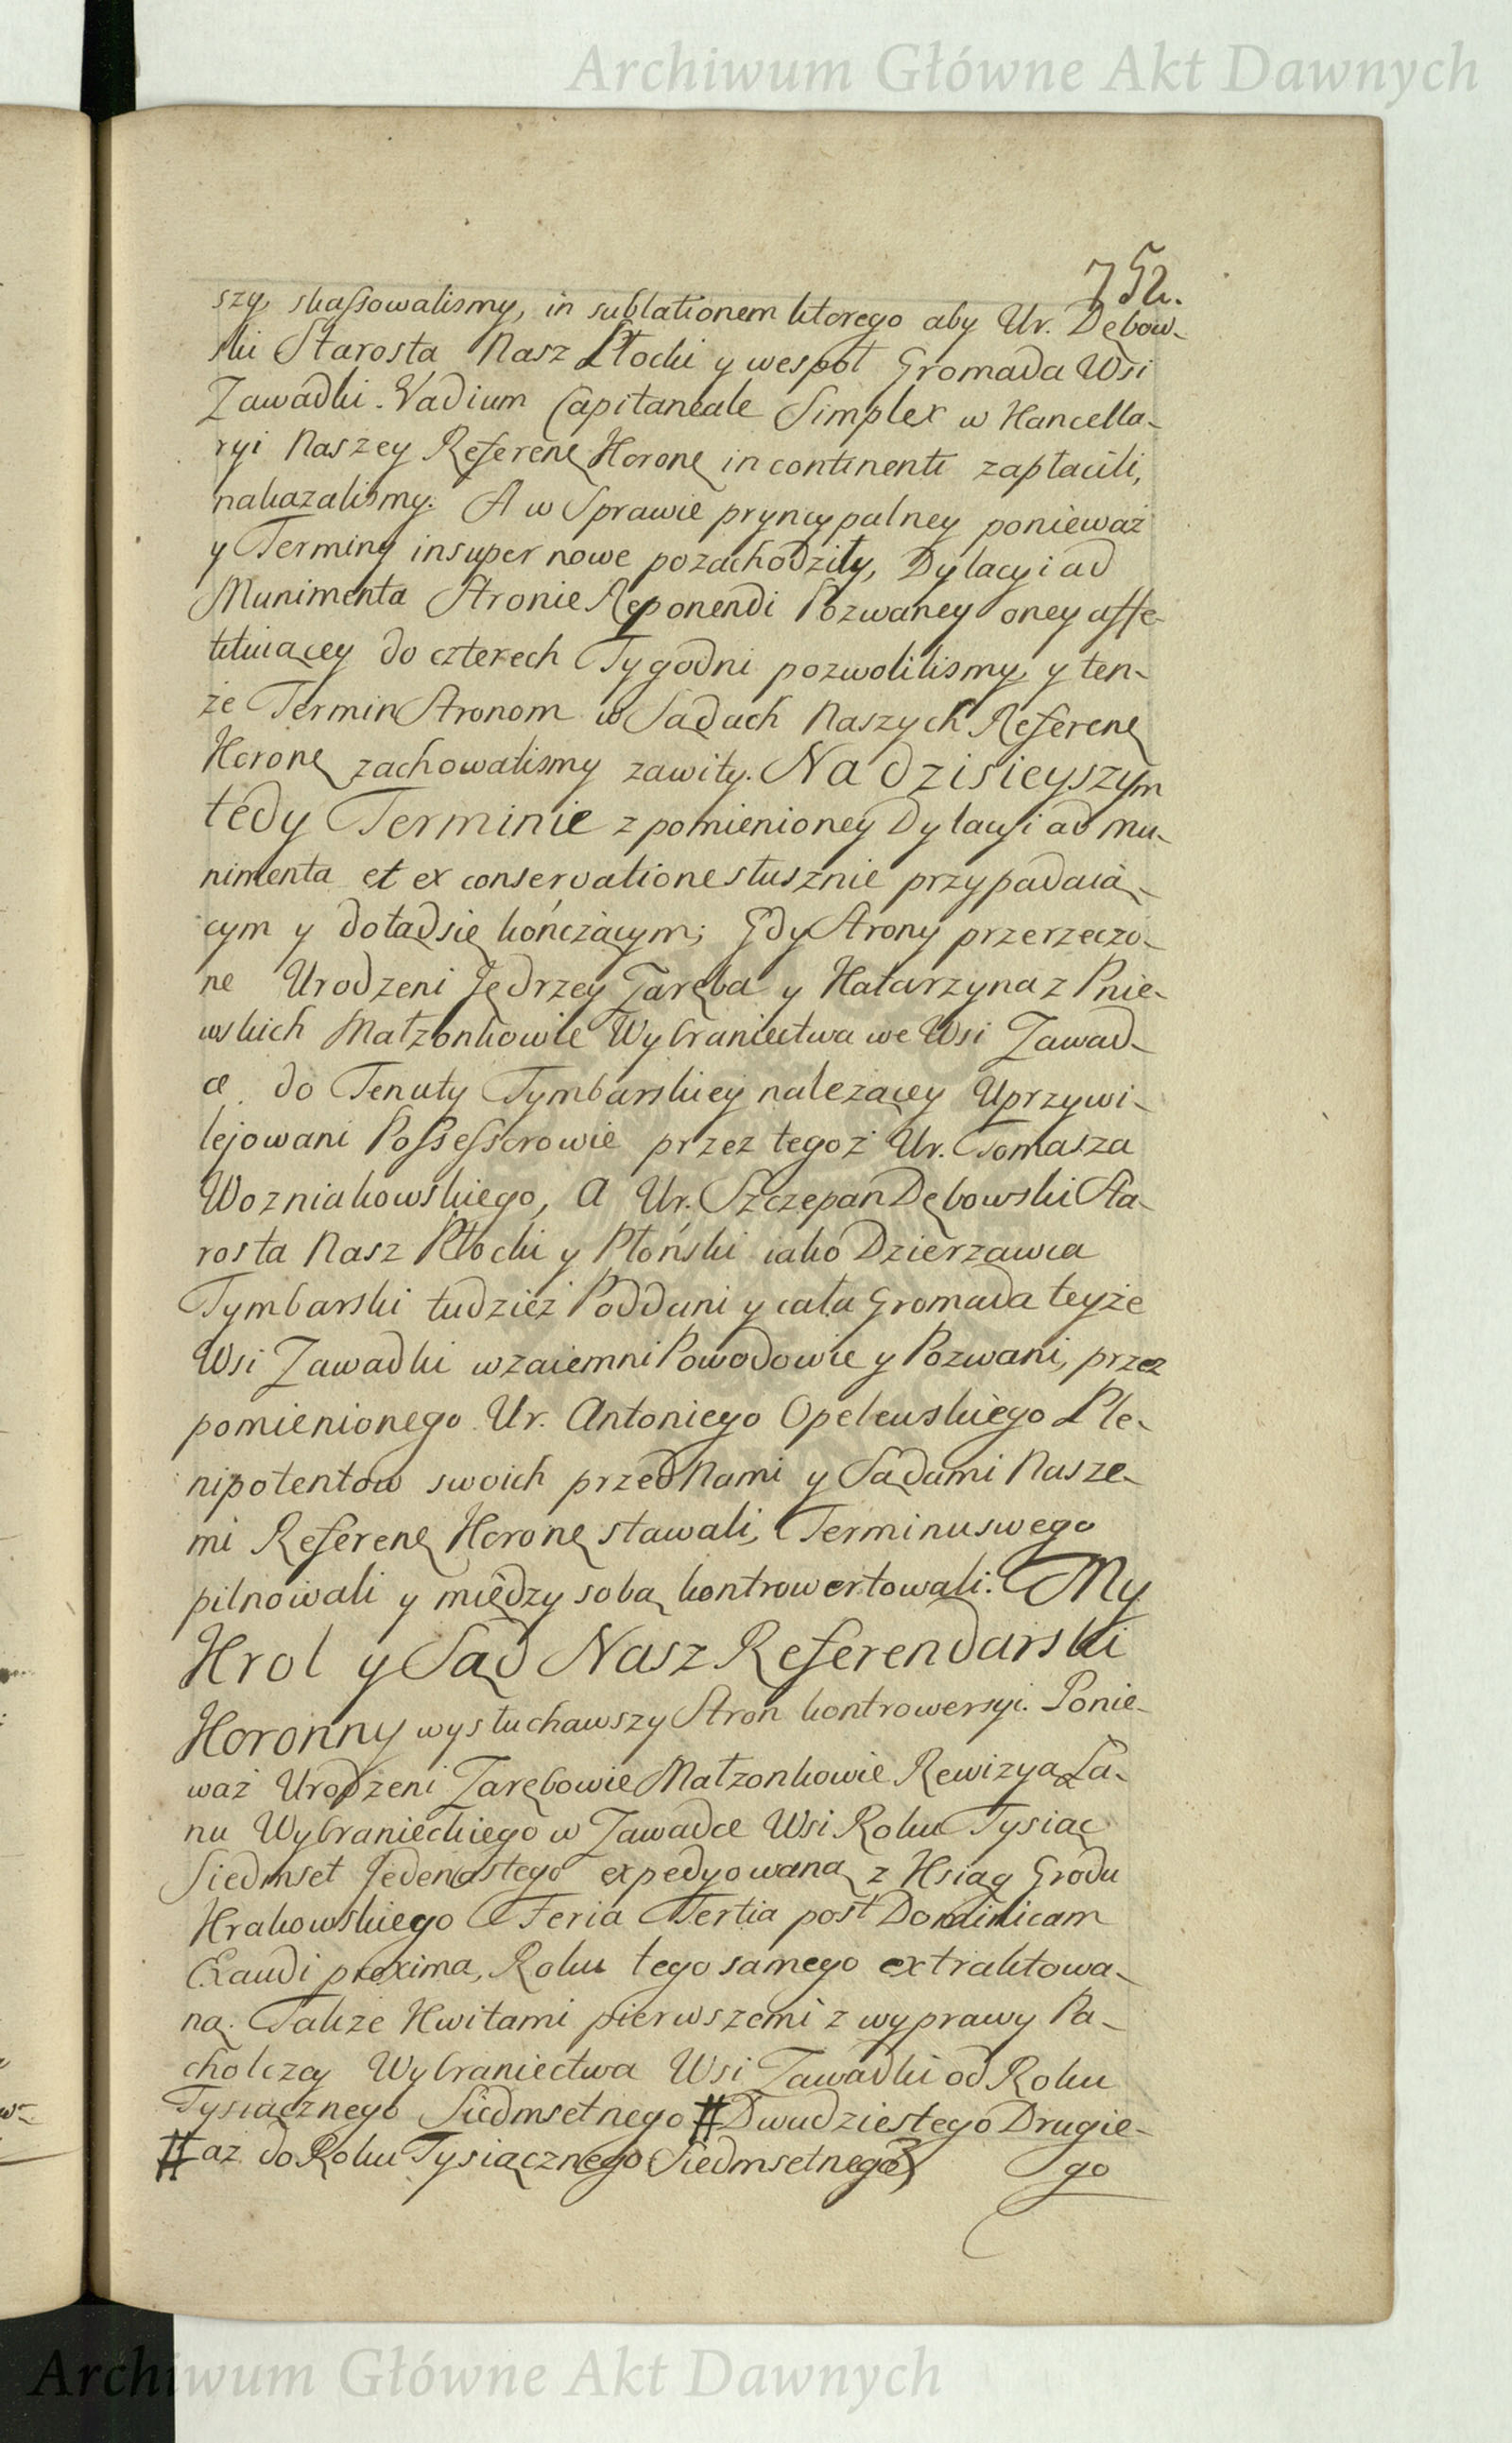 Archiwum Główne Akt Dawnych
752.
szy, skassowalismy, in sublationem ktorego aby Ur. Dębow-
ski Starosta Nasz Płocki y wespoł Gromada Wsi
Zawadki. Vadium Capitaneale Simplex w Kancella-
ryi Naszey Referen Koron in continenti zapłacili,
nakazalismy. A w Sprawie pryncypalney ponieważ
y Terminy insuper nowe pozachodziły, Dylacyi ad
Munimenta Stronie Reponendi Pozwaney oney affe-
ktuiącey do czterech Tygodni pozwolilismy, y ten-
że Termin Stronom w Sądach Naszych Referen
Koron zachowalismy zawity. Na dzisieyszym
tedy Terminie z pomienioney Dylacyi ad mu-
nimenta et ex conservatione słusznie przypadaią-
cym y dotąd się kończącym; Gdy Strony przerzeczo-
ne Urodzeni Jędrzey Zaręba y Katarzyna z Pnie-
wskich Małzonkowie Wybraniectwa we Wsi Zawad-
ce do Tenuty Tymbarskiey należącey Uprzywi-
lejowani Possessorowie przez tegoż Ur. Tomasza
Wozniakowskiego, A Ur. Szczepan Dębowski Sta-
rosta Nasz Płocki y Płoński iako Dzierzawca
Tymbarski tudzież Poddani y cała Gromada teyże
Wsi Zawadki wzaiemni Powodowie y Pozwani, przez
pomienionego Ur. Antoniego Opeleuskiego Ple-
nipotentow swoich przed Nami y Sądami Nasze-
mi Referen Koron stawali, Terminu swego
pilnowali y między sobą kontrowertowali. My
Krol y Sąd Nasz Referendarski
Koronny wysłuchawszy Stron kontrowersyi. Ponie-
waż Urodzeni Zarębowie Małzonkowie Rewizyą Ła-
nu Wybranieckiego w Zawadce Wsi Roku Tysiąc
Siedmset Jedenastego expedyowaną z Ksiąg Grodu
Krakowskiego Feria Tertia post Dominicam
Exaudi proxima, Roku tego samego extraktowa-
ną. Także Kwitami pierwszemi z wyprawy Pa-
cholczey Wybraniectwa Wsi Zawadki od Roku
Tysiącznego Siedmsetnego # Dwudziestego Drugie-
# aż do Roku Tysiącznego Siedmsetnego go
Archiwum Główne Akt Dawnych